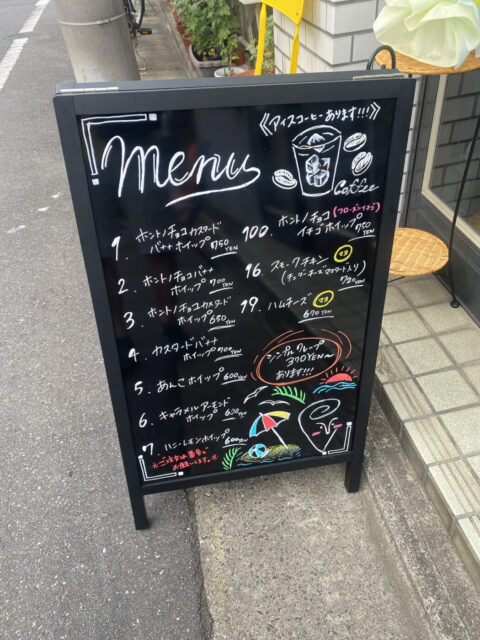 《アイスコーヒーあります!!!》
Menu
Coffee
1. ホントノチョコカスタード
バナナホイップ 750 YEN
2. ホントノチョコバナナ
ホイップ 700 YEN
3. ホントノチョコカスタード
ホイップ 650 YEN
4. カスタードバナナ
ホイップ 700 YEN
5. あんこホイップ 600 YEN
6. キャラメルアーモンド
ホイップ 600 YEN
7. ハニーレモンホイップ 600 YEN
※ご注文は番号で
お願いします。※
100. ホントノチョコ (フローズンイチゴ)
イチゴホイップ 750 YEN
16. スモークチキン
(チェダーチーズマスタード入り)
730 YEN
19. ハムチーズ
670 YEN
シンプルクレープ
370 YEN〜
あります!!!